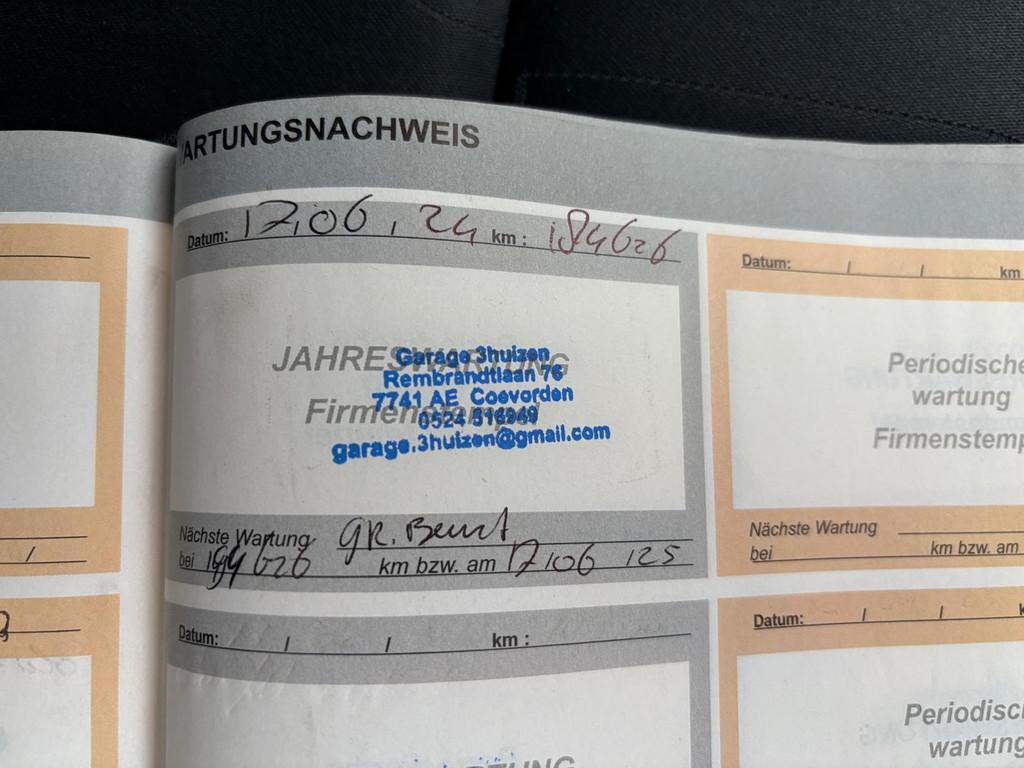 WARTUNGSNACHWEIS
Datum: 17.06.24 km: 184626
JAHRESWARTUNG
Garage 3huizen
Rembrandtlaan 76
7741 AE Coevorden
Firmenstempel
0524 516949
garage.3huizen@gmail.com
Nächste Wartung GR. Beurt
bei 194626 km bzw. am 17/06/25
Datum: / / km
Periodische
wartung
Firmenstemp
Nächste Wartung
bei km bzw. am
Datum: / / km :
Datum: / / k
Periodisc
wartung